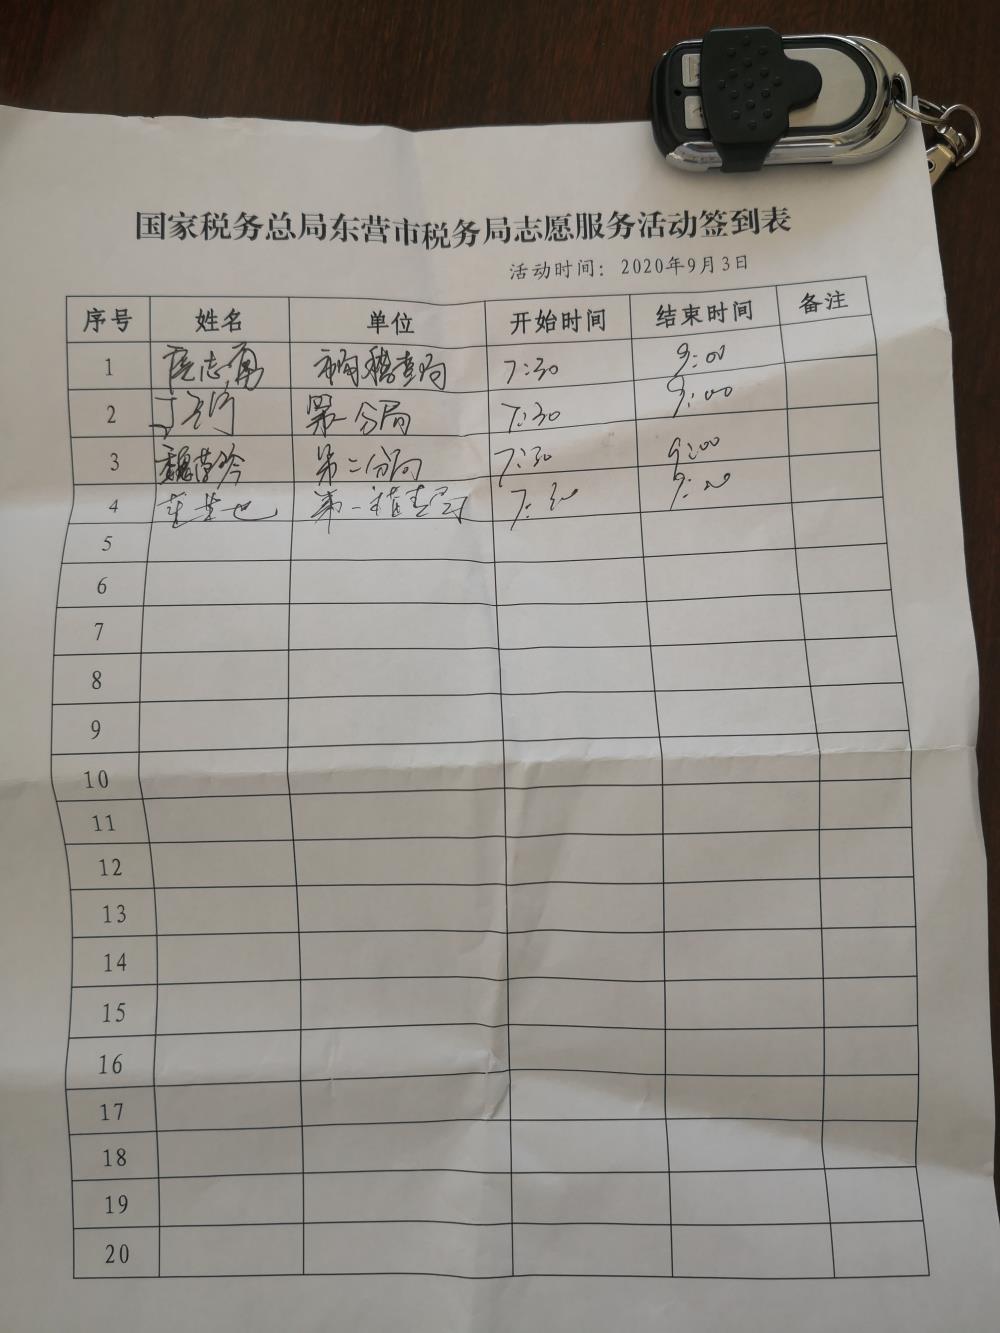 国家税务总局东营市税务局志愿服务活动签到表
活动时间：2020年9月3日
序号 姓名 单位 开始时间 结束时间 备注
1 志勇 稽查局 7:30 9:00
2 第一分局 7:30 9:00
3 魏 第二分局 7:30 9:00
4 第一稽查局 7:30 9:00
5
6
7
8
9
10
11
12
13
14
15
16
17
18
19
20